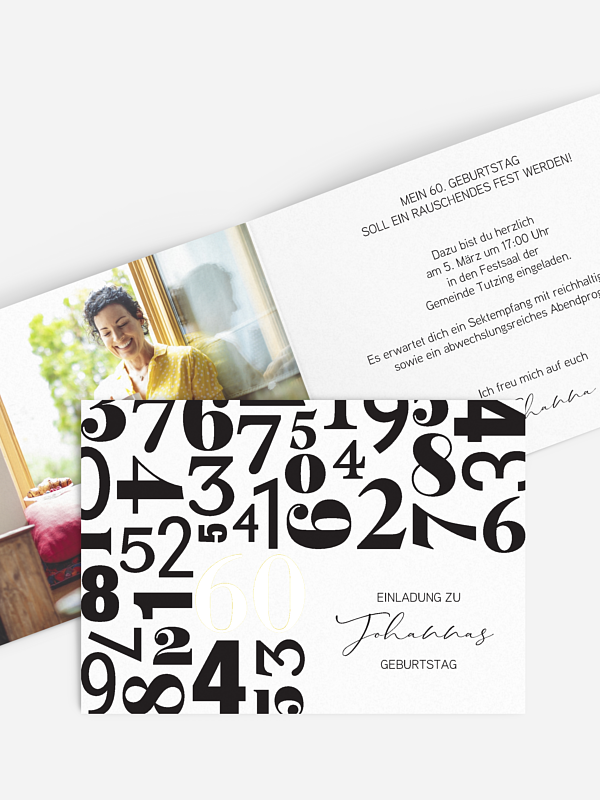 MEIN 60. GEBURTSTAG
SOLL EIN RAUSCHENDES FEST WERDEN!
Dazu bist du herzlich
am 5. März um 17:00 Uhr
in den Festsaal der
Gemeinde Tutzing eingeladen.
Es erwartet dich ein Sektempfang mit
sowie ein abwechslungsreiches
Ich freu mich auf euch
60
EINLADUNG ZU
Johannas
GEBURTSTAG